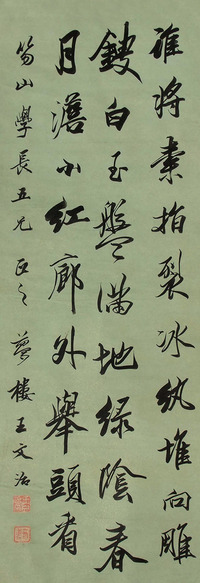 誰將素指裂冰紈堆向雕
鎪白玉盤滿地綠陰春
月澹小紅廊外舉頭看
笏山學長五兄正之 夢樓王文治